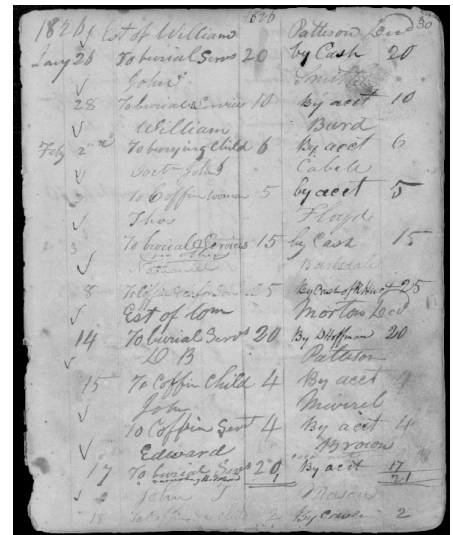 1826 Est of William Pattison Decd 30
Jany 26 To burial Servs 20 by Cash 20
John Smith
28 To burial Services 10 By acct 10
William Burd
Feby 2nd To burying Child 6 By acct 6
Doctr John J Cabell
3 To Coffin woman 5 by acct 5
Thos Floyd
3 To burial Services 15 by Cash 15
mother
Nathaniel Barksdale
8 To Coffin 25 by Cash of R Hunt 25
Est of Com Morton Decd
14 To burial Servs 20 By D Hoffman 20
D B Patteson
15 To Coffin Child 4 By acct 4
John
To Coffin Servt 4 By acct 4
Edward Brown
17 To burial Servs 20 By acct 17
21
John Mason
18 To Coffin 2 by Cash 2